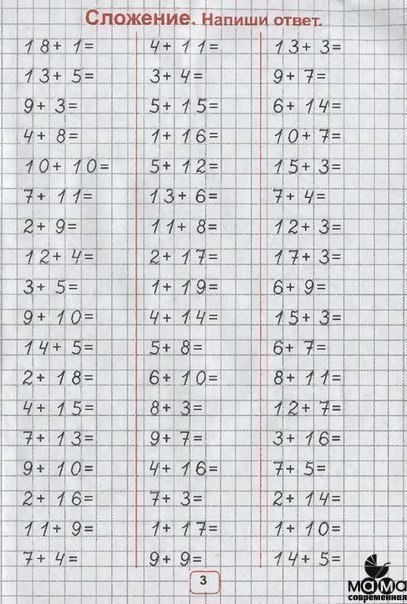 Сложение. Напиши ответ.
18+ 1= 4+ 11= 13+ 3=
13+ 5= 3+ 4= 9+ 7=
9+ 3= 5+ 15= 6+ 14=
4+ 8= 1+ 16= 10+ 7=
10+ 10= 5+ 12= 15+ 3=
7+ 11= 13+ 6= 7+ 4=
2+ 9= 11+ 8= 12+ 3=
12+ 4= 2+ 17= 17+ 3=
3+ 5= 1+ 19= 6+ 9=
9+ 10= 4+ 14= 15+ 3=
14+ 5= 5+ 8= 6+ 7=
2+ 18= 6+ 10= 8+ 11=
4+ 15= 8+ 3= 12+ 7=
7+ 13= 9+ 7= 3+ 16=
9+ 10= 4+ 16= 7+ 5=
2+ 16= 7+ 3= 2+ 14=
11+ 9= 1+ 17= 1+ 10=
7+ 4= 9+ 9= 14+ 5=
3
мама
современная